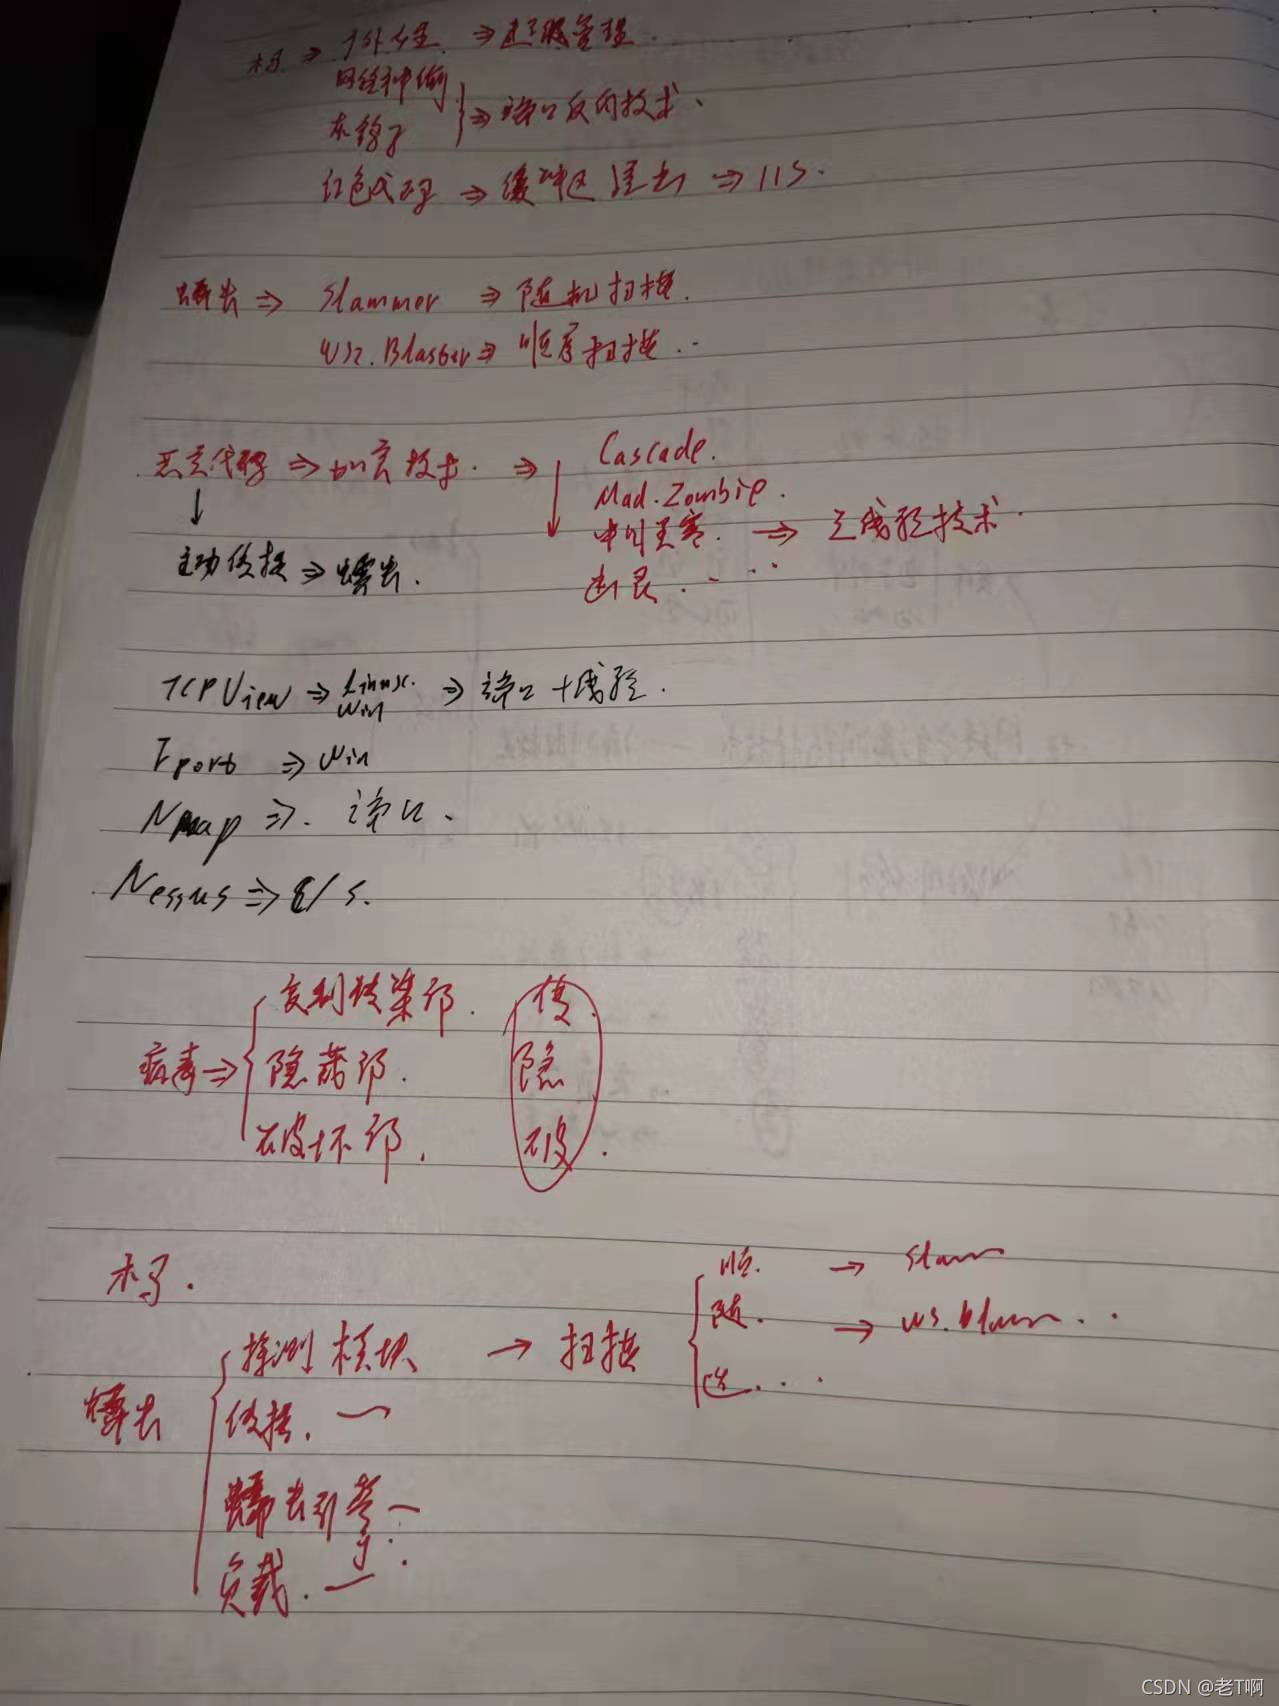 木马 ⇒ 广外女生 ⇒ 远程管理.
网络神偷
灰鸽子 } ⇒ 端口反向技术.
红色代码 ⇒ 缓冲区溢出 ⇒ IIS.
蠕虫 ⇒ Slammer ⇒ 随机扫描.
W32.Blaster ⇒ 顺序扫描..
恶意代码 ⇒ 加密技术. ⇒ Cascade.
Mad.Zombie.
中国黑客. → 三线程技术.
↓
主动传播 ⇒ 蠕虫.
TCPView ⇒ Linux. Win ⇒ 端口+线程.
Fport ⇒ Win
Nmap ⇒. 端口.
Nessus ⇒ C/S.
病毒 ⇒ { 复制传染部. 传.
隐蔽部. 隐
破坏部. 破.
木马.
蠕虫 { 探测模块 → 扫描 { 顺. → Slam
随. → W3.Blam...
选....
传播.
蠕虫引擎
负载.
CSDN @老T啊